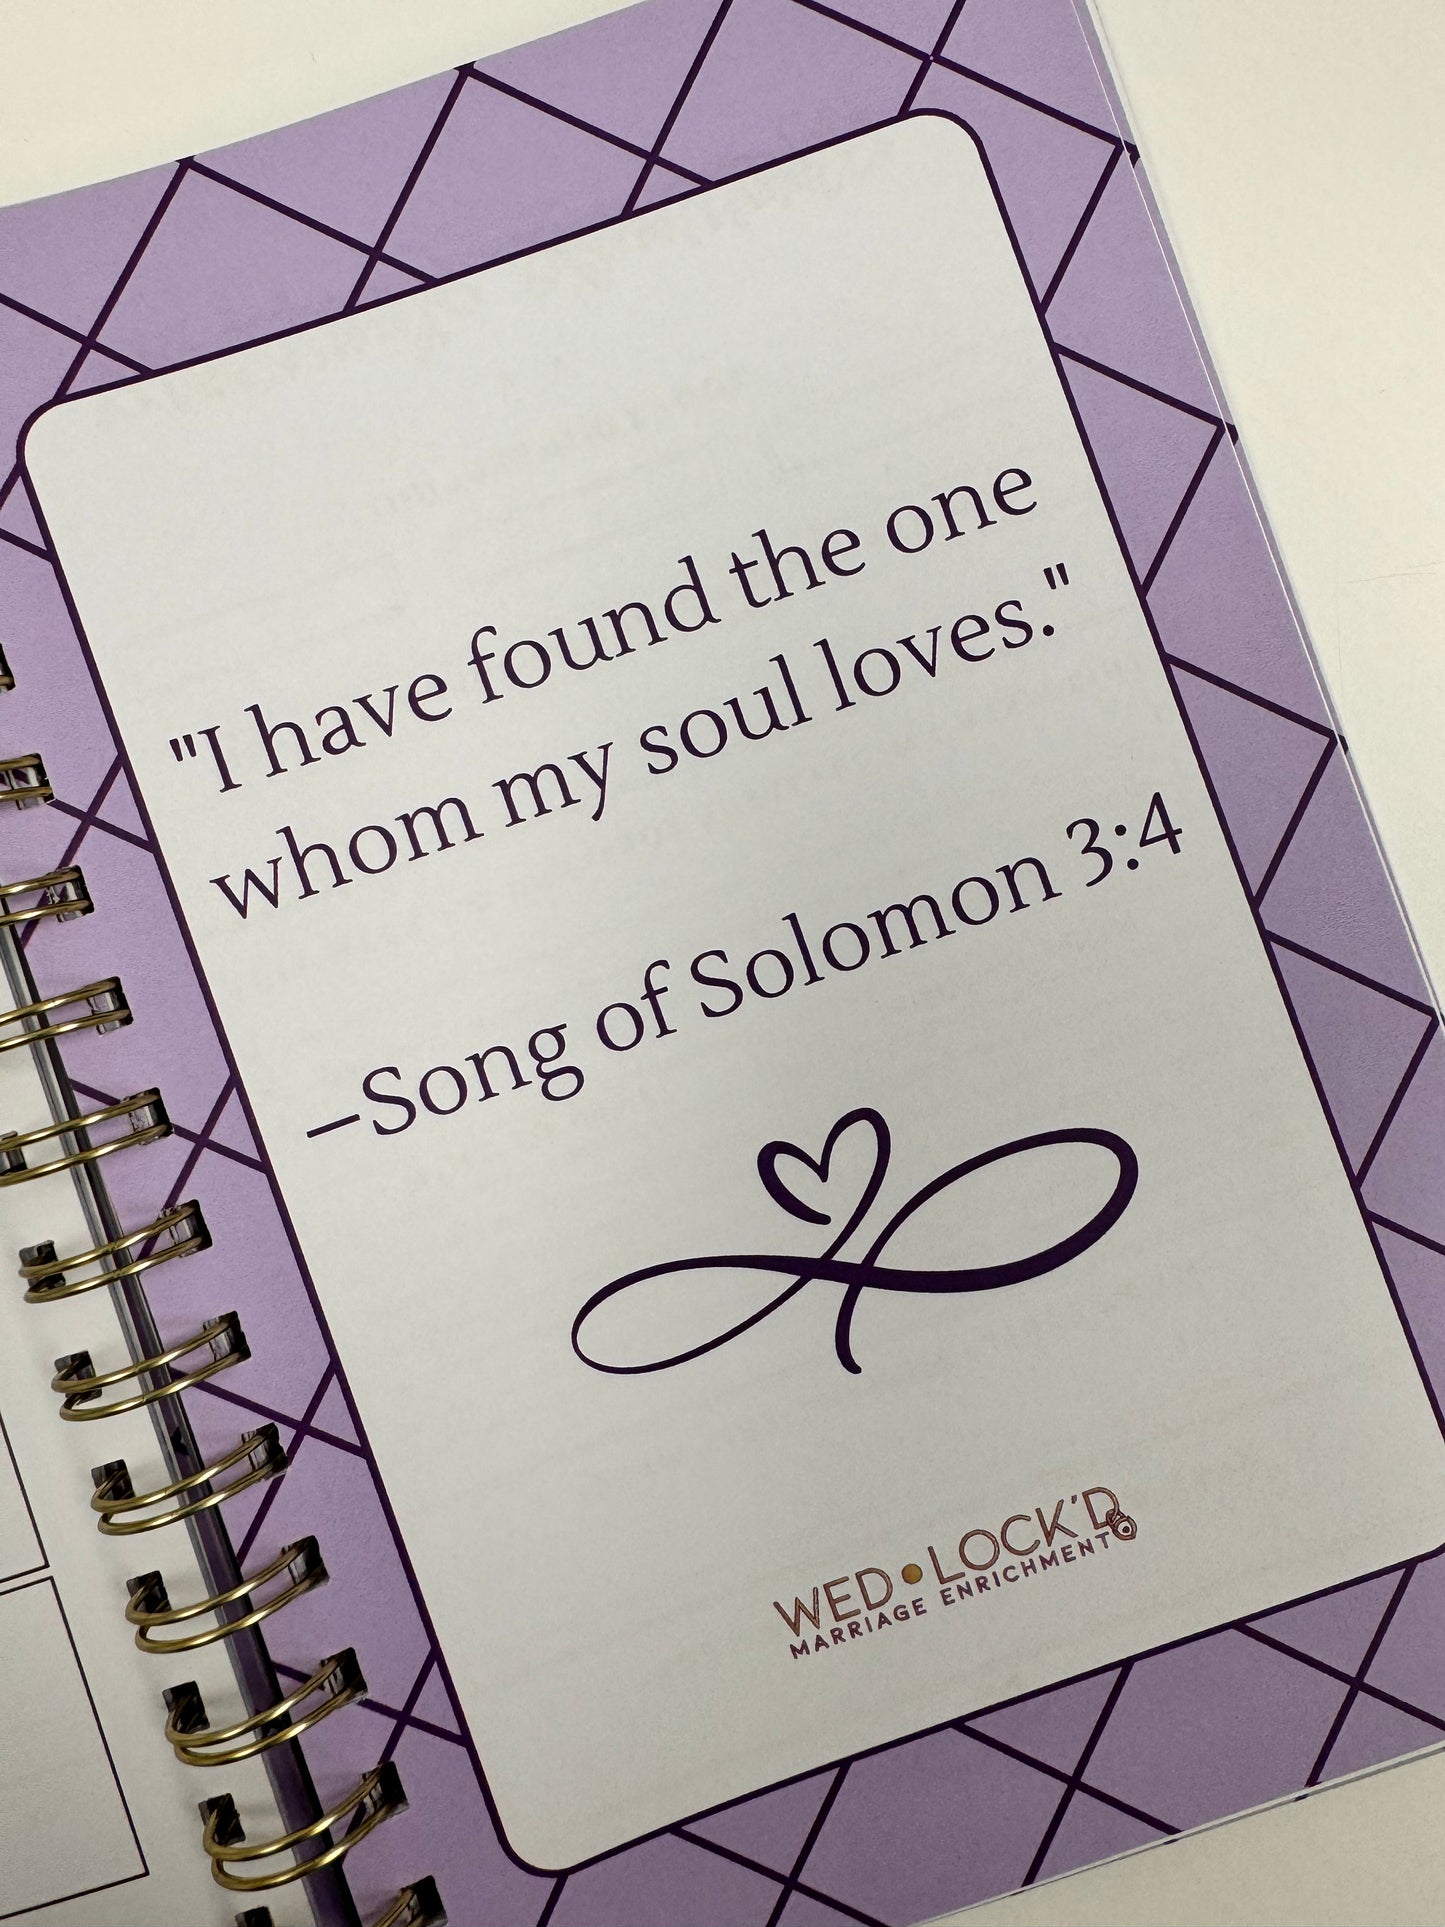 "I have found the one
whom my soul loves."
–Song of Solomon 3:4
WED•LOCK'D
MARRIAGE ENRICHMENT